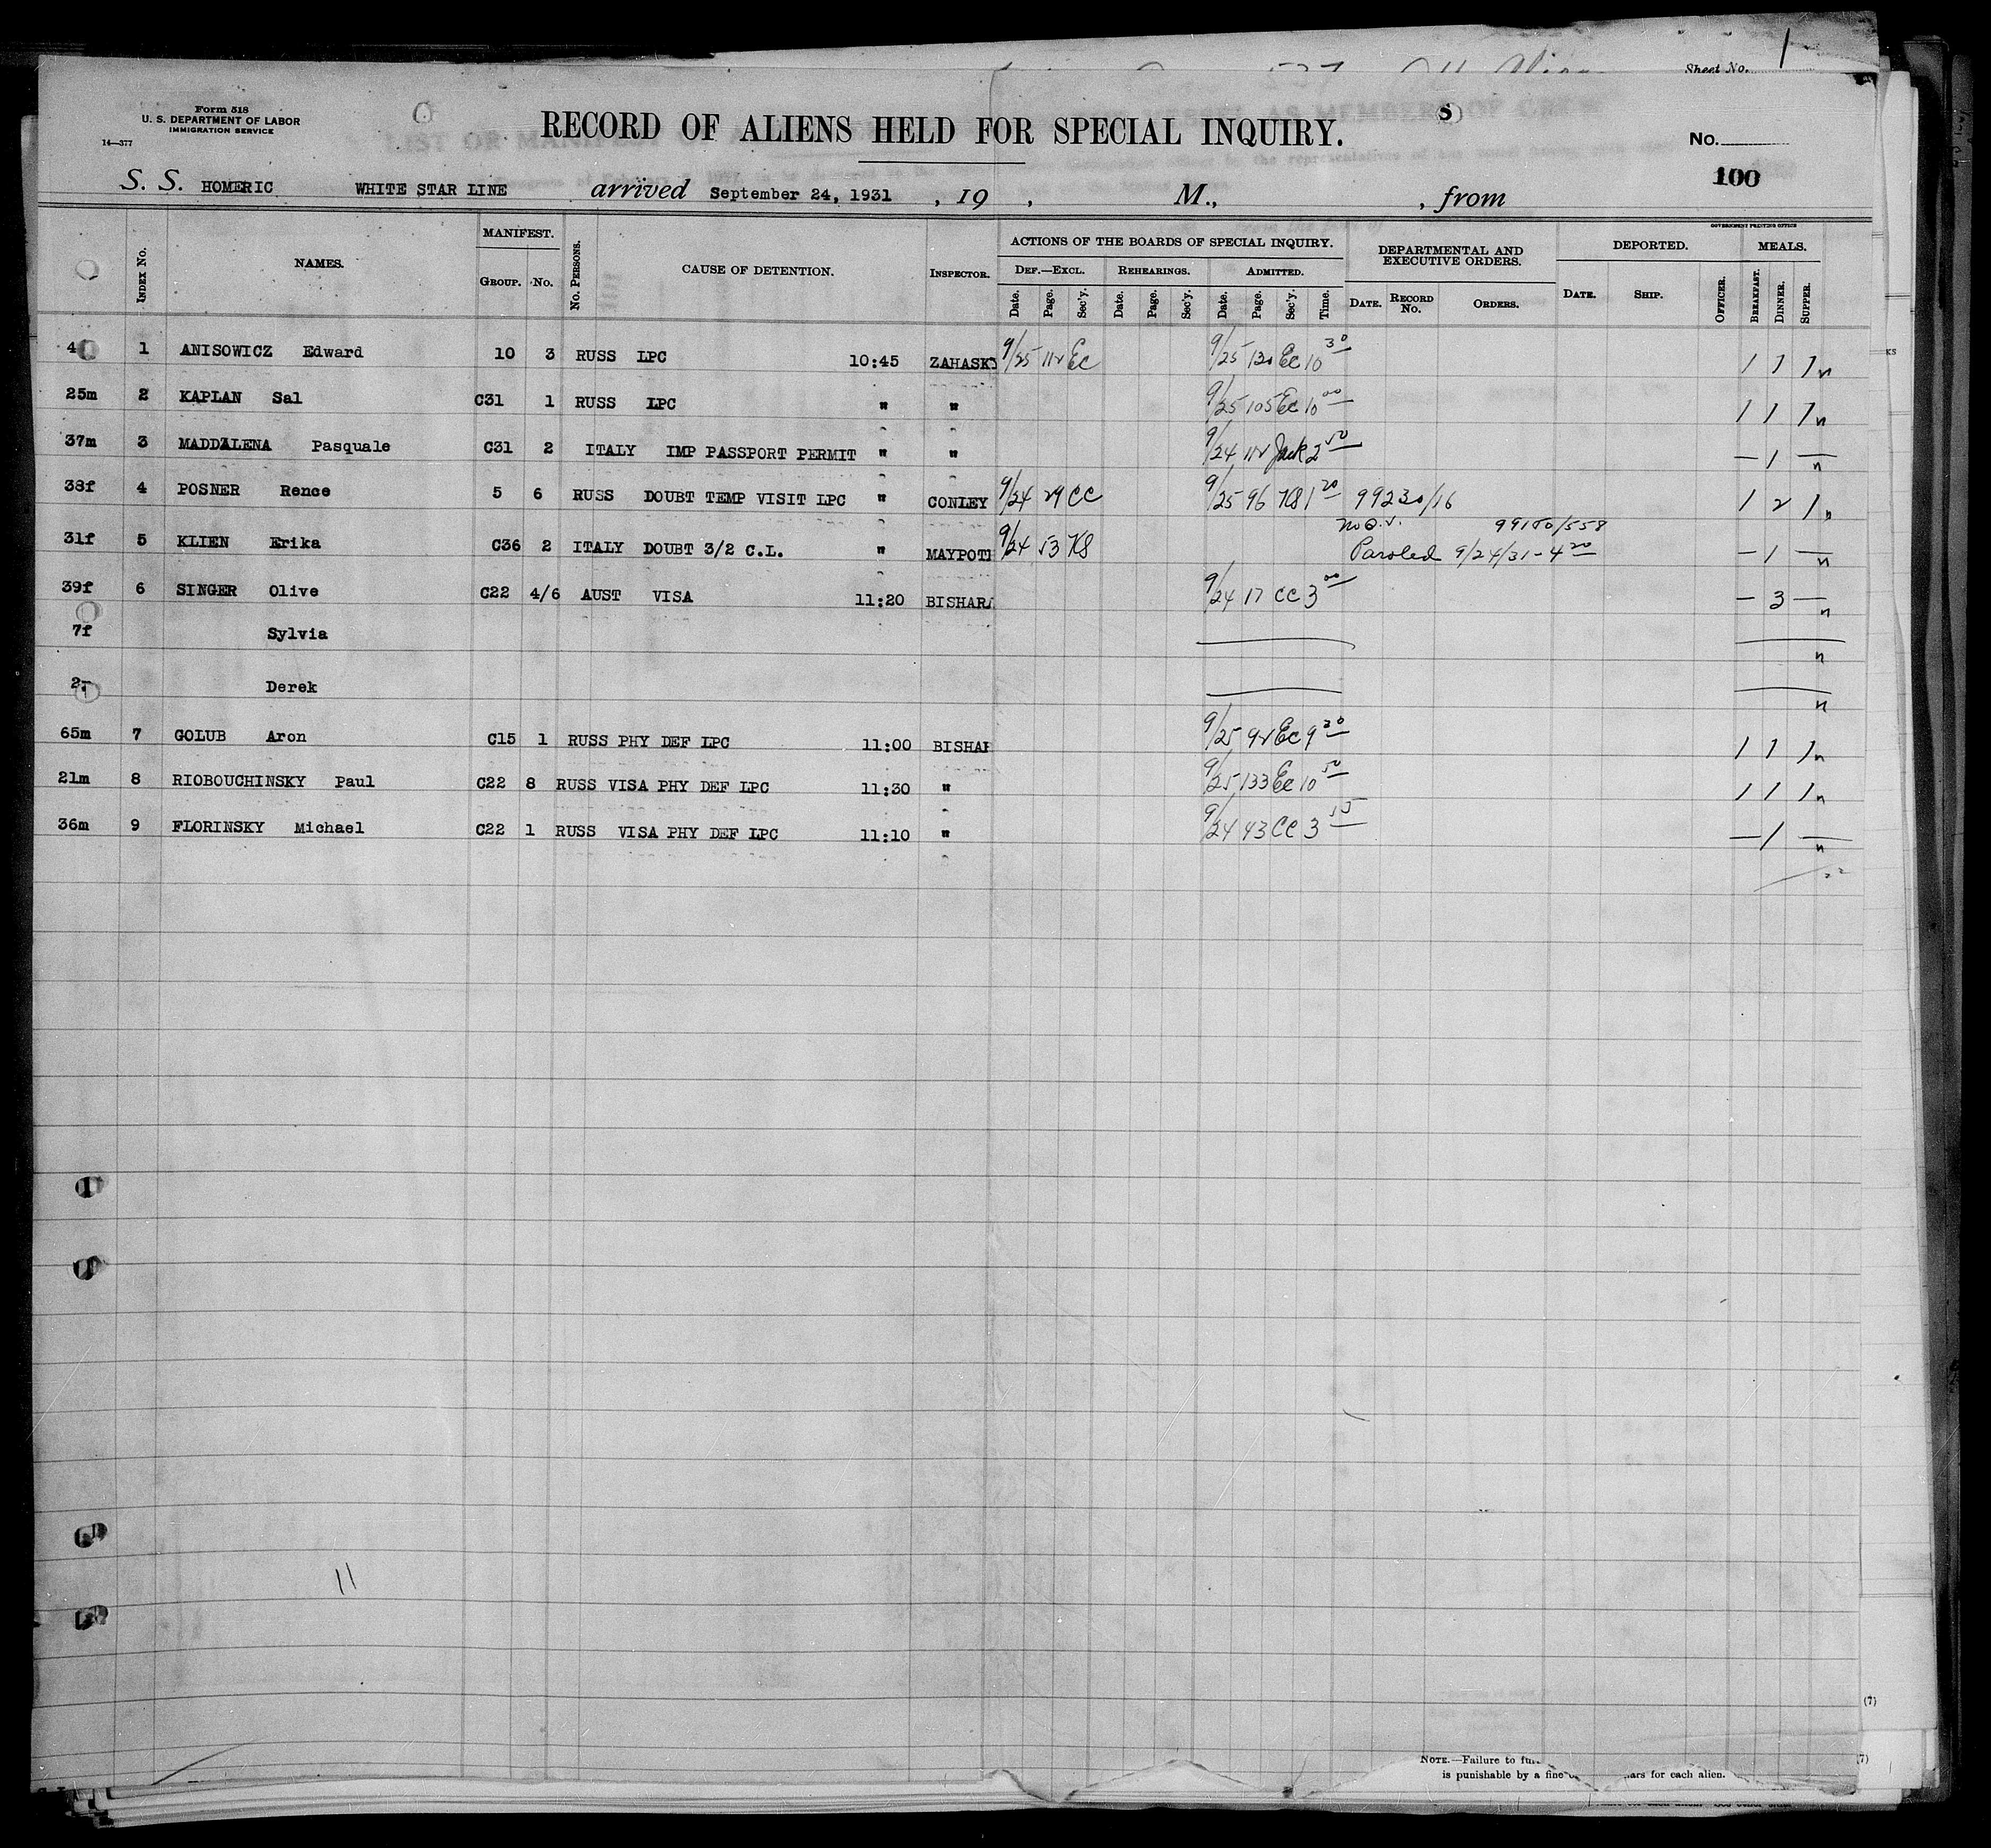 Sheet No. 1
Form 518
U. S. DEPARTMENT OF LABOR
IMMIGRATION SERVICE
14—377
RECORD OF ALIENS HELD FOR SPECIAL INQUIRY.
S
No.
100
S. S. HOMERIC WHITE STAR LINE arrived September 24, 1931 , 19 , M., , from
GOVERNMENT PRINTING OFFICE
INDEX No. NAMES. MANIFEST. GROUP. No. No. PERSONS. CAUSE OF DETENTION. INSPECTOR. ACTIONS OF THE BOARDS OF SPECIAL INQUIRY. DEPARTMENTAL AND EXECUTIVE ORDERS. DEPORTED. MEALS.
DEF.—EXCL. REHEARINGS. ADMITTED.
Date. Page. Sec'y. Date. Page. Sec'y. Date. Page. Sec'y. Time. DATE. RECORD No. ORDERS. DATE. SHIP. OFFICER. BREAKFAST. DINNER. SUPPER.
4 1 ANISOWICZ Edward 10 3 RUSS LPC 10:45 ZAHASKY 9/25 112 EC 9/25 120 EC 10 30 1 1 1 n
25m 2 KAPLAN Sal C31 1 RUSS LPC " " 9/25 105 EC 10 00 1 1 1 n
37m 3 MADDALENA Pasquale C31 2 ITALY IMP PASSPORT PERMIT " " 9/24 112 Jack 2 50 — 1 — n
38f 4 POSNER Rence 5 6 RUSS DOUBT TEMP VISIT LPC " CONLEY 9/24 29 CC 9/25 96 KS 1 20 99230/16 1 2 1 n
99150/558
31f 5 KLIEN Erika C36 2 ITALY DOUBT 3/2 C.L. " MAYPOTH 9/24 53 KS Paroled 9/24/31 - 4 20 — 1 — n
39f 6 SINGER Olive C22 4/6 AUST VISA 11:20 BISHARA 9/24 17 CC 3 00 — 3 — n
7f Sylvia n
2 Derek n
65m 7 GOLUB Aron C15 1 RUSS PHY DEF LPC 11:00 BISHAR 9/25 92 EC 9 30 1 1 1 n
21m 8 RIOBOUCHINSKY Paul C22 8 RUSS VISA PHY DEF LPC 11:30 " 9/25 133 EC 10 50 1 1 1 n
36m 9 FLORINSKY Michael C22 1 RUSS VISA PHY DEF LPC 11:10 " 9/24 43 CC 3 15 — 1 — n
11
(7)
NOTE.—Failure to
is punishable by a fine for each alien.
(7)